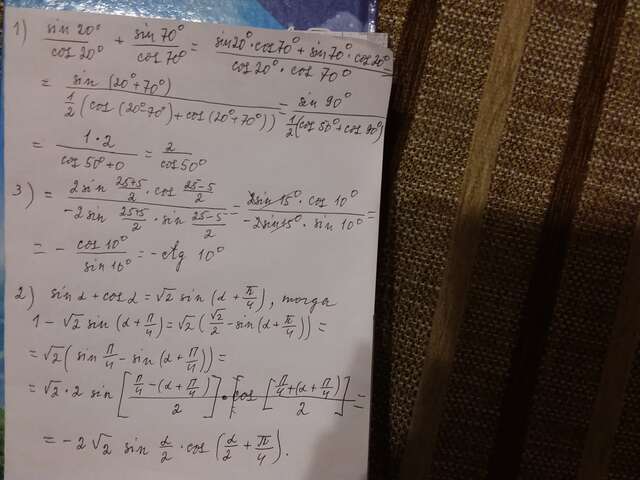 1) sin 20° / cos 20° + sin 70° / cos 70° = sin 20° · cos 70° + sin 70° · cos 20° / cos 20° · cos 70° =
= sin (20° + 70°) / 1/2 (cos (20° - 70°) + cos (20° + 70°)) = sin 90° / 1/2 (cos 50° + cos 90°)
= 1 · 2 / cos 50° + 0 = 2 / cos 50°
3) = 2 sin 25+5/2 · cos 25-5/2 / -2 sin 25+5/2 · sin 25-5/2 = 2 sin 15° · cos 10° / -2 sin 15° · sin 10° =
= - cos 10° / sin 10° = - ctg 10°
2) sin α + cos α = √2 sin (α + π/4), тогда
1 - √2 sin (α + π/4) = √2 (√2/2 - sin (α + π/4)) =
= √2 (sin π/4 - sin (α + π/4)) =
= √2 · 2 sin [π/4 - (α + π/4) / 2] · cos [π/4 + (α + π/4) / 2] =
= -2√2 sin α/2 · cos (α/2 + π/4).